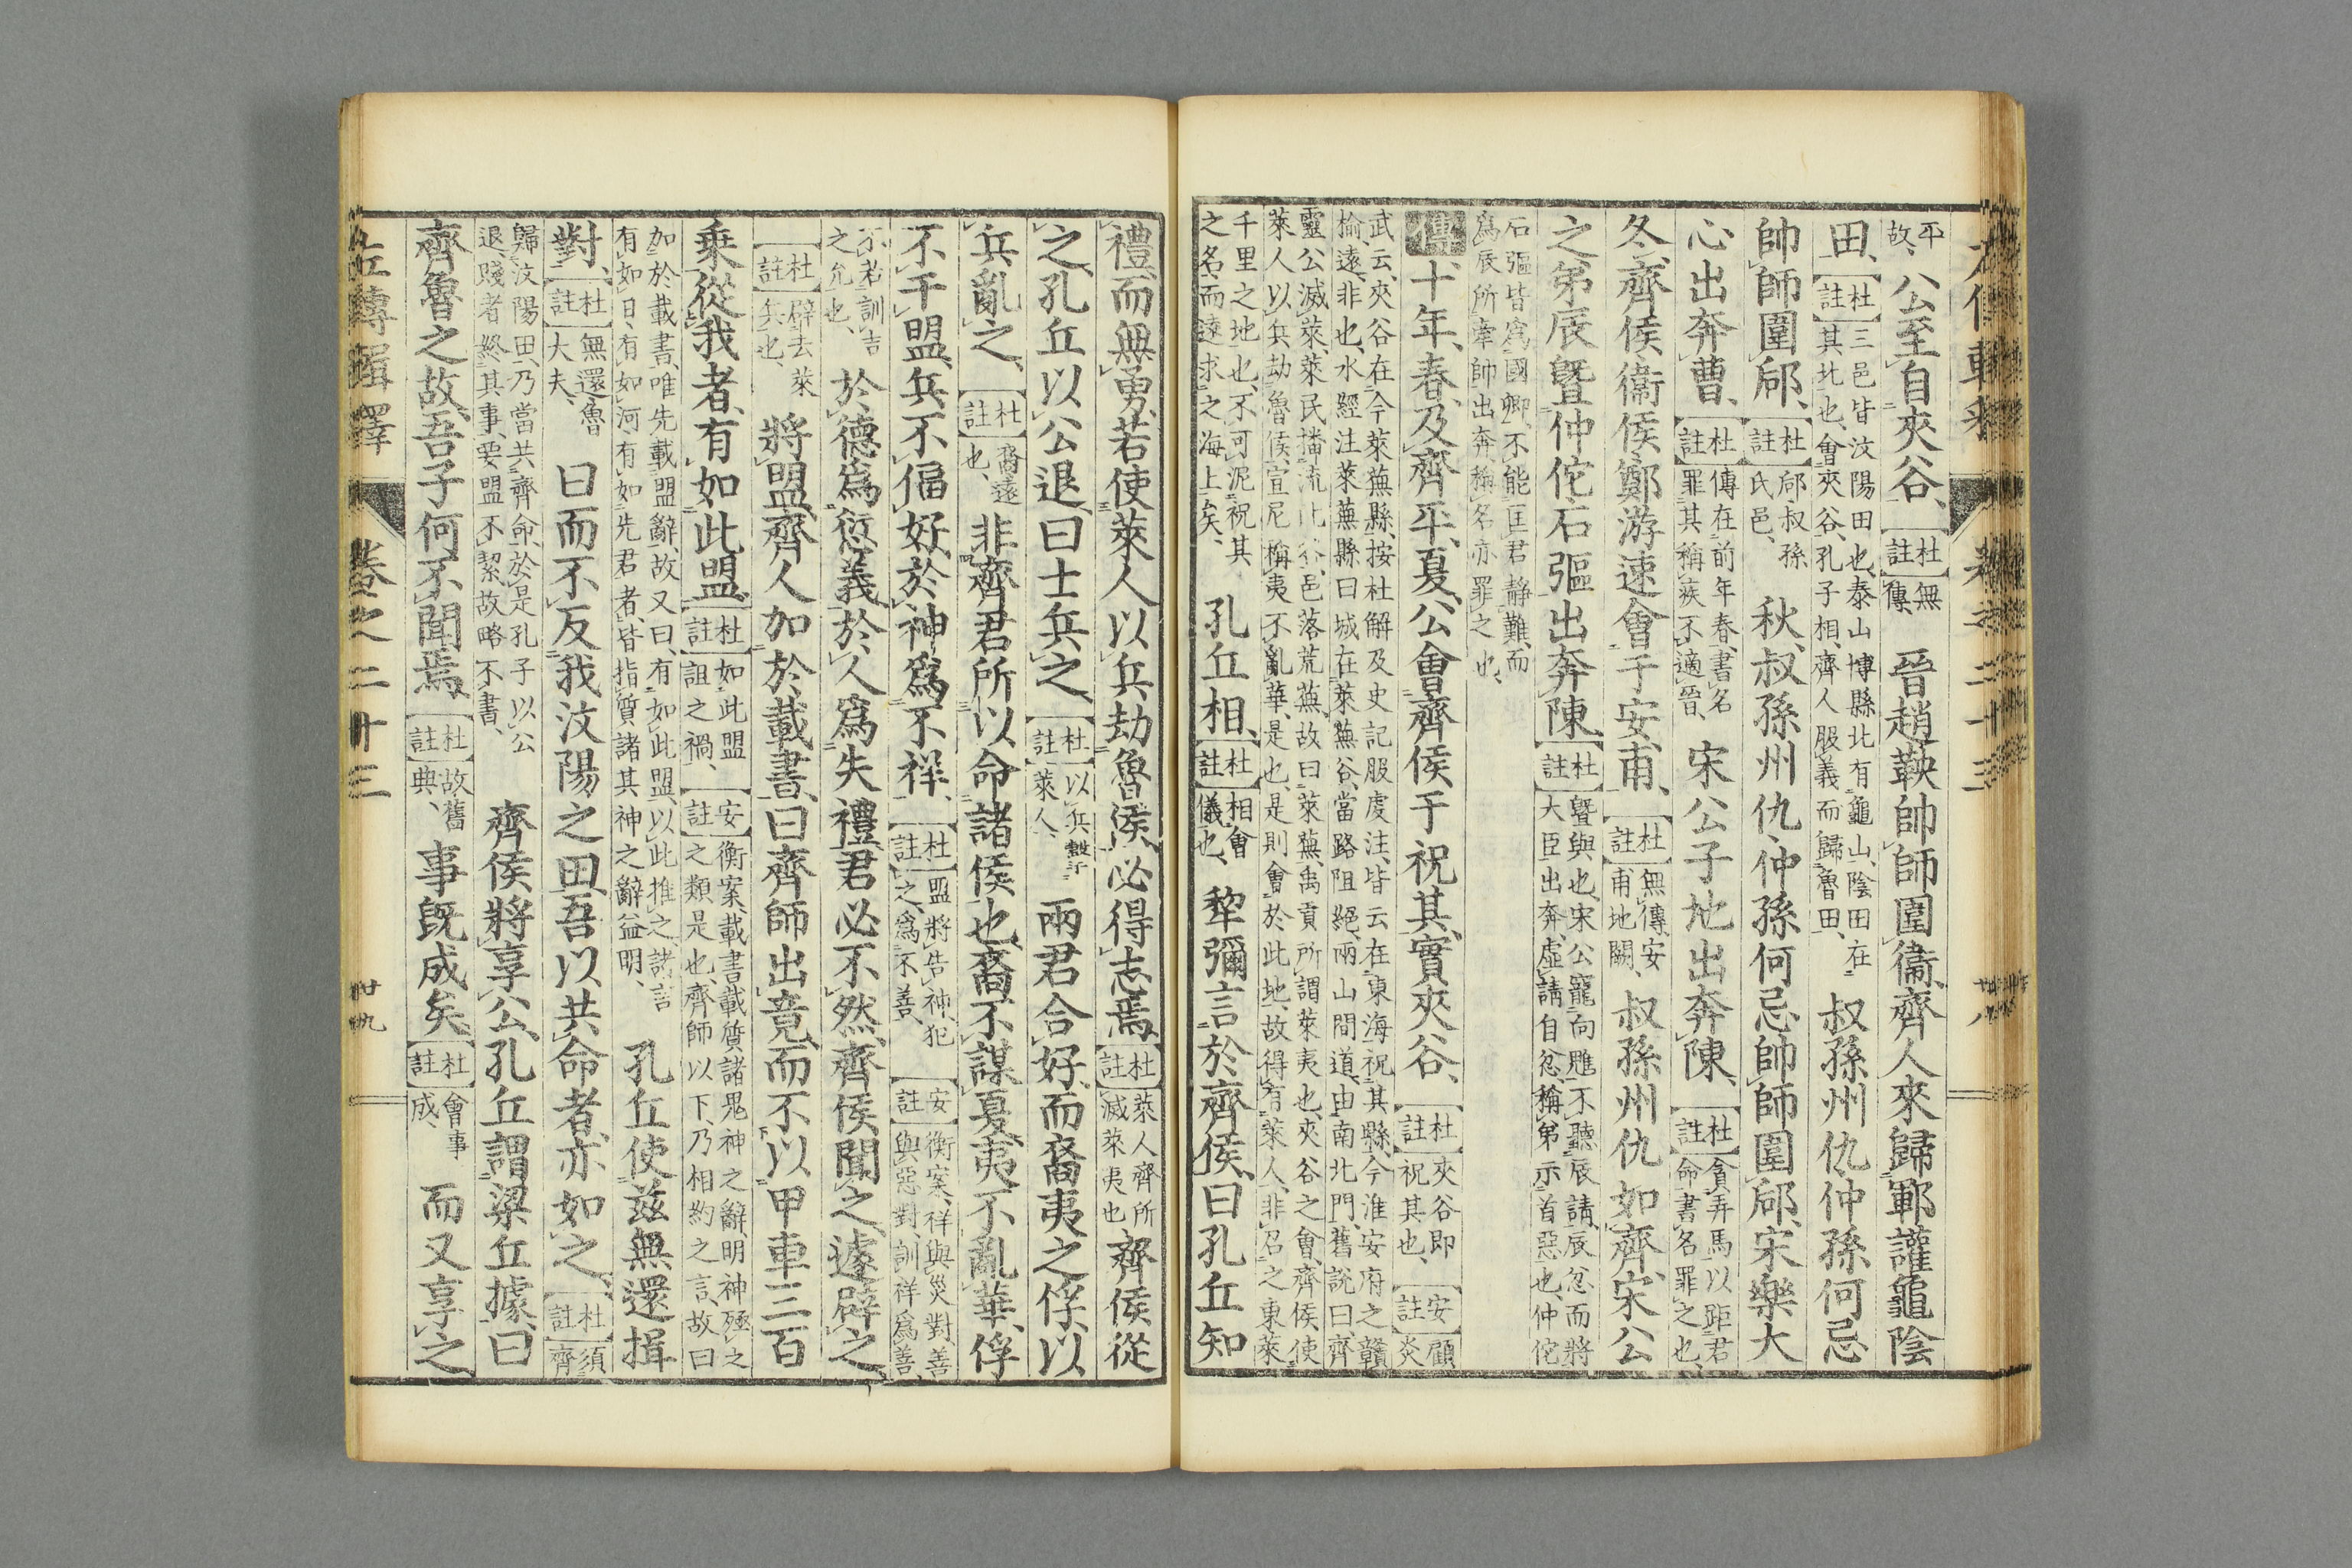 平故、公至自夾谷、杜註無傳、晉趙鞅帥師圍衞、齊人來歸鄆讙龜陰
田、杜註三邑皆汶陽田也、泰山博縣北有龜山、陰田在其北也、會夾谷、孔子相、齊人服義而歸魯田、叔孫州仇仲孫何忌
帥師圍郈、杜註郈叔孫氏邑、秋、叔孫州仇、仲孫何忌帥師圍郈、宋樂大
心出奔曹、杜註傳在前年春、書名罪其稱疾不適晉、宋公子地出奔陳、杜註貪弄馬以距君命書名罪之也、
冬、齊侯衞侯鄭游速會于安甫、杜註無傳、安甫地闕、叔孫州仇如齊、宋公
之弟辰曁仲佗石彄出奔陳、杜註曁與也、宋公寵向魋不聽辰請、辰忿而將大臣出奔、虛請自忿、稱弟示首惡也、仲佗
石彄皆爲國卿、不能匡君靜難、而爲辰所牽帥出奔、稱名亦罪之也、
傳十年、春、及齊平、夏、公會齊侯于祝其、實夾谷、杜註夾谷即祝其也、安註顧炎
武云、夾谷在今萊蕪縣、按杜解及史記服虔注、皆云在東海祝其縣、今淮安府之贛榆、遠非也、水經注萊蕪縣曰、城在萊蕪谷、當路阻絕、兩山間道、由南北門、舊說曰、齊
靈公滅萊、萊民播流此谷、邑落荒蕪、故曰萊蕪、禹貢所謂萊夷也、夾谷之會、齊侯使萊人以兵劫魯侯、宣尼稱夷不亂華、是也、是則會於此地、故得有萊人、非召之東萊
千里之地也、不可泥祝其之名、而遠求之海上矣、孔丘相、杜註相會儀也、犂彌言於齊侯、曰孔丘知
禮、而無勇、若使萊人以兵劫魯侯、必得志焉、杜註萊人齊所滅萊夷也、齊侯從
之、孔丘以公退、曰士兵之、杜註以兵擊萊人、兩君合好、而裔夷之俘、以
兵亂之、杜註裔遠也、非齊君所以命諸侯也、裔不謀夏、夷不亂華、俘
不干盟、兵不偪好、於神爲不祥、杜註盟將告神、犯之、爲不善、安註衡案、祥與災對、善與惡對、訓祥爲善、
不若訓吉之允也、於德爲愆義、於人爲失禮、君必不然、齊侯聞之、遽辟之、
杜註辟去萊兵也、將盟、齊人加於載書、曰齊師出竟、而不以甲車三百
乘從我者、有如此盟、杜註如此盟詛之禍、安註衡案、載書載質諸鬼神之辭、明神殛之之類是也、齊師以下、乃相約之言、故曰
加於載書、唯先載盟辭、故又曰、有如此盟、以此推之、諸言有如日、有如河有如先君者、皆指質諸其神之辭益明、孔丘使茲無還揖
對、杜註無還魯大夫、曰而不反我汶陽之田、吾以共命者、亦如之、杜註須齊
歸汶陽田、乃當共齊命、於是孔子以公退、賤者終其事、要盟不絜、故略不書、齊侯將享公、孔丘謂梁丘據、曰
齊魯之故、吾子何不聞焉、杜註故舊典、事旣成矣、杜註會事成、而又享之
左傳輯釋 卷之二十三 廿九